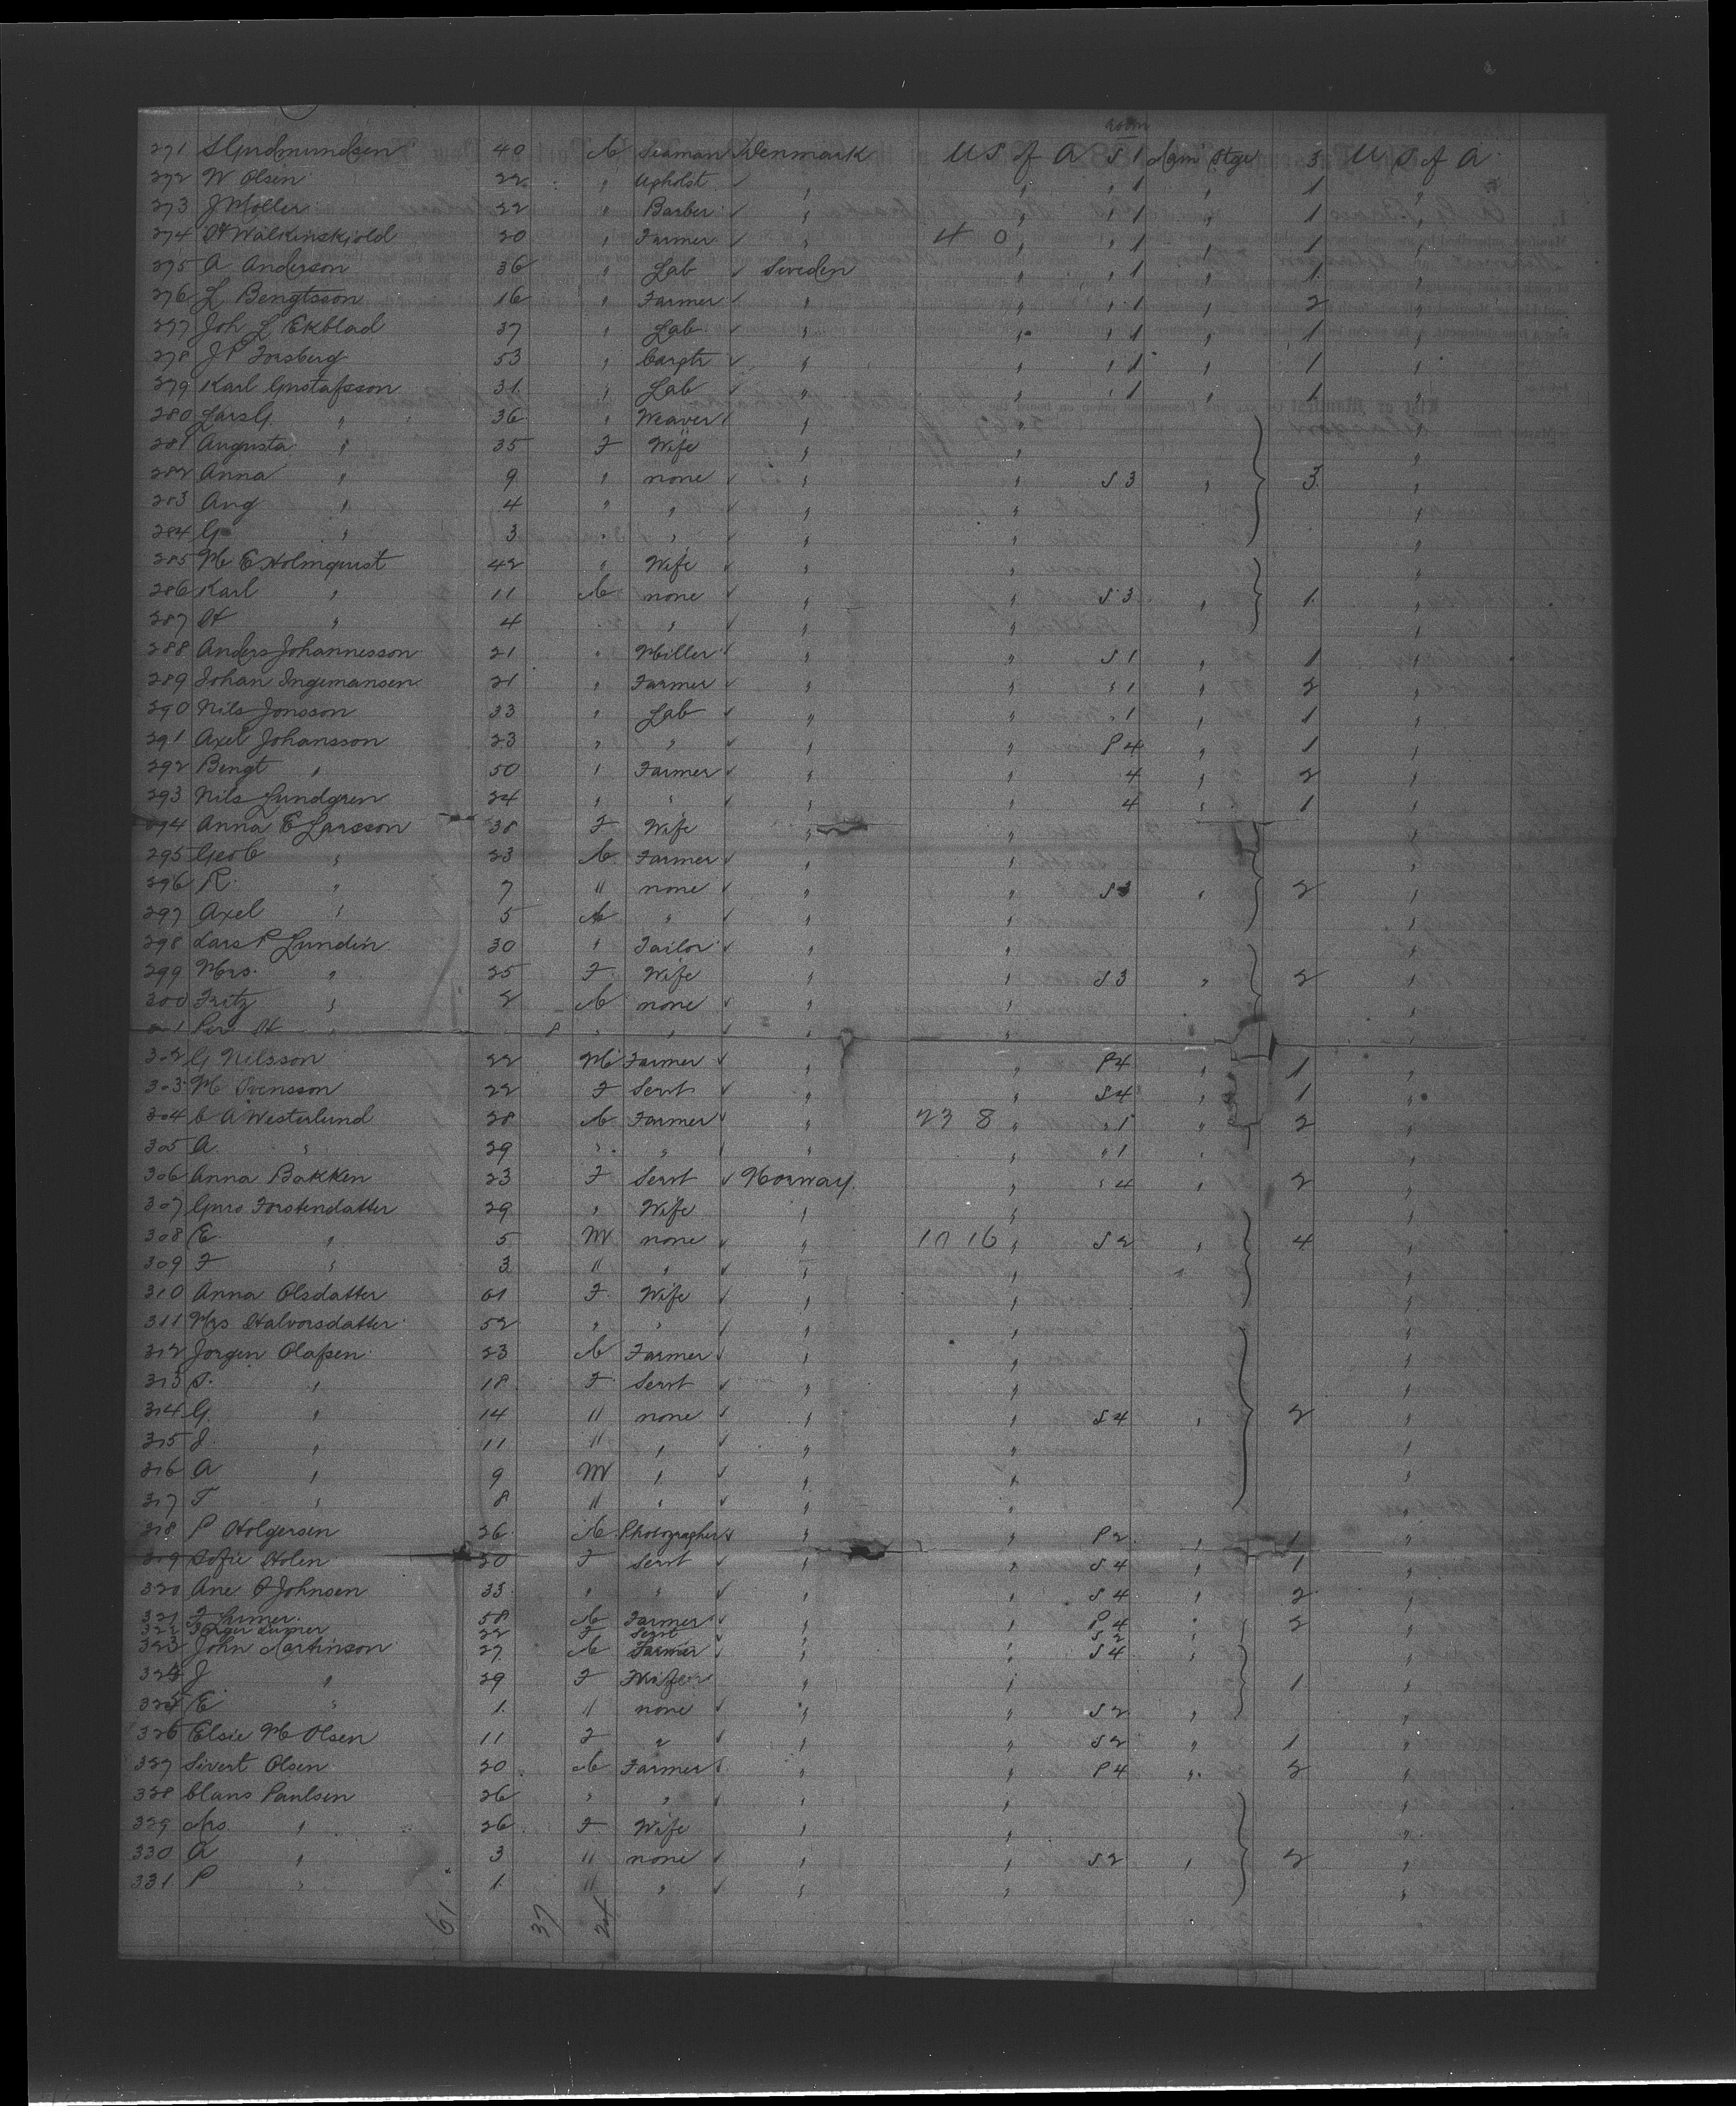 room
271 S Gudmundsen 40 M Seaman Denmark U S of A S 1 Mgm Stge 3 U S of A
272 W Olsen 22 " Upholst ✓ " " " 1 " 1 "
273 J Moller 22 " Barber ✓ " " " 1 " 1 "
274 H Walkinskjold 20 " Farmer ✓ " 4 0 " " 1 " 1 "
275 A Anderson 36 " Lab ✓ Sweden " " 1 " 1 "
276 L Bengtsson 16 " Farmer ✓ " " " 1 " 2 "
277 Joh L Ekblad 37 " Lab ✓ " " " 1 " 1 "
278 J P Forsberg 53 " Carptr ✓ " " " 1 " 1 "
279 Karl Gustafsson 31 " Lab ✓ " " " 1 " 1 "
280 Lars G " 36 " Weaver ✓ " " "
281 Augusta " 35 F Wife " " "
282 Anna " 9 " none ✓ " " S 3 " 3 "
283 Aug " 4 " " ✓ " " "
284 G " 3 " " ✓ " " "
285 M E Holmquist 42 " Wife ✓ " " "
286 Karl " 11 M none ✓ " " S 3 " 1 "
287 H " 4 " " ✓ " " "
288 Anders Johannesson 21 " Miller ✓ " " S 1 " 1 "
289 Johan Ingemansen 21 " Farmer ✓ " " " 1 " 2 "
290 Nils Jonsson 33 " Lab ✓ " " " 1 " 1 "
291 Axel Johansson 23 " " ✓ " " P 4 " 1 "
292 Bengt " 50 " Farmer ✓ " " 4 " 2 "
293 Nils Lundgren 24 " " ✓ " " 4 " 1 "
294 Anna E Larsson 38 F Wife " " "
295 Geo C " 23 M Farmer ✓ " " "
296 R " 7 " none ✓ " " S 3 " 2 "
297 Axel " 5 M " ✓ " " "
298 Lars P Lundin 30 " Tailor ✓ " " "
299 Mrs " 25 F Wife " " S 3 " 2 "
300 Fritz " 2 M none ✓ " " "
301 Per H " 8 " " ✓ " " "
302 G Nilsson 22 M Farmer ✓ " " P 4 " 1 "
303 M Svensson 22 F Servt ✓ " " S 4 " 1 "
304 C A Westerlund 28 M Farmer ✓ " 23 8 " " 1 " 2 "
305 A " 29 " " " " " 1 " "
306 Anna Bakken 23 F Servt ✓ Norway " " 4 " 2 "
307 Guro Torstendatter 29 " Wife " " "
308 E " 5 M none ✓ " 10 16 " S 2 " 4 "
309 T " 3 " " ✓ " " "
310 Anna Olsdatter 61 F Wife ✓ " " "
311 Mrs Halvorsdatter 52 " " ✓ " " "
312 Jorgen Olafsen 23 M Farmer ✓ " " "
313 S " 18 F Servt ✓ " " "
314 G " 14 " none ✓ " " S 4 " 2 "
315 J " 11 " " ✓ " " "
316 A " 9 M " ✓ " " "
317 T " 8 " " ✓ " " "
318 P Holgersen 26 M Photographer ✓ " " P 2 " 1 "
319 Sofie Holen 20 F Servt ✓ " " S 4 " 1 "
320 Ane O Johnsen 33 " " ✓ " " S 4 " 2 "
321 58 M Farmer ✓ " " P 4 " 2 "
322 22 F Servt ✓ " " S 2 "
323 John Martinson 27 M Farmer ✓ " " S 4 "
324 J " 29 F Wife " " 1 "
325 E " 1 " none ✓ " " S 2 " "
326 Elsie M Olsen 11 F " ✓ " " S 2 " 1 "
327 Sivert Olsen 20 M Farmer ✓ " " P 4 " 2 "
328 Claus Paulsen 26 " " ✓ " " "
329 Mrs " 26 F Wife " " "
330 A " 3 " none ✓ " " S 2 " 2 "
331 P " 1 " " ✓ " " "
61 37 24